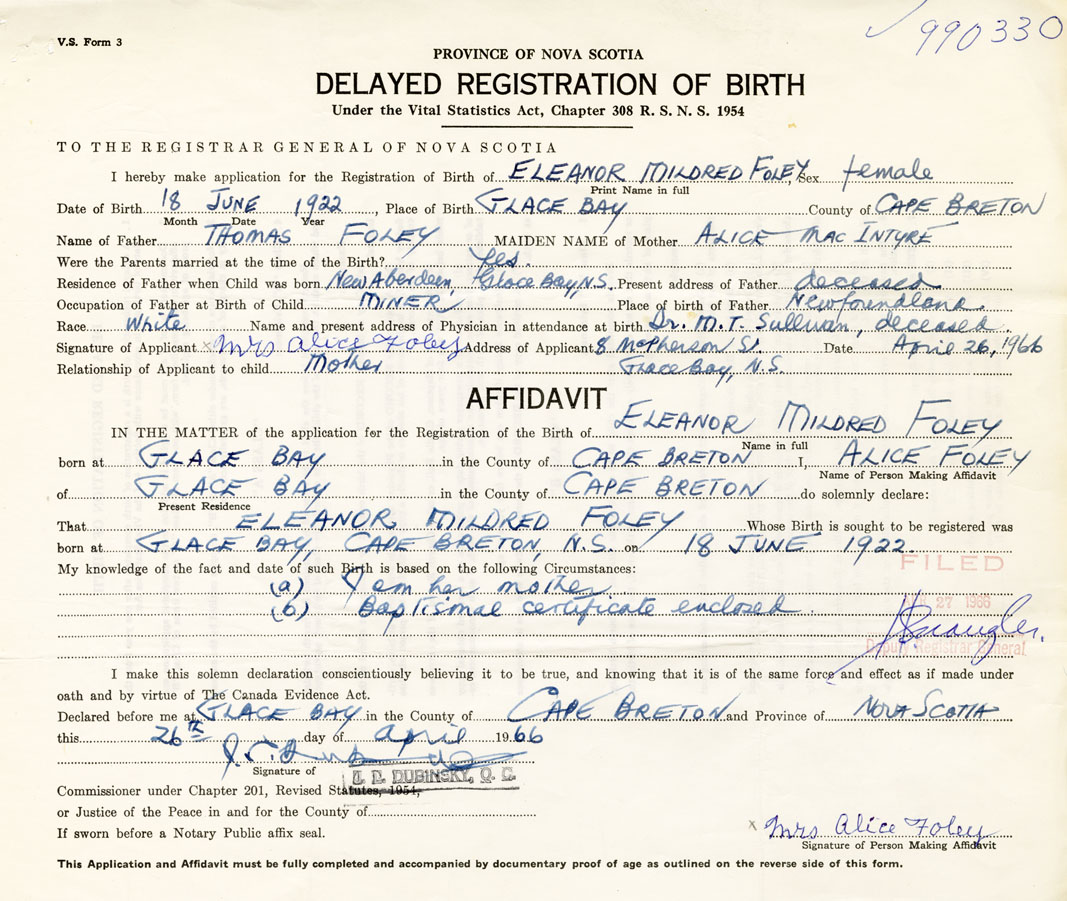 V.S. Form 3
990330
PROVINCE OF NOVA SCOTIA
DELAYED REGISTRATION OF BIRTH
Under the Vital Statistics Act, Chapter 308 R. S. N. S. 1954
TO THE REGISTRAR GENERAL OF NOVA SCOTIA
I hereby make application for the Registration of Birth of ELEANOR MILDRED FOLEY, Sex female
Print Name in full
Date of Birth 18 JUNE 1922, Place of Birth GLACE BAY County of CAPE BRETON
Month Date Year
Name of Father THOMAS FOLEY MAIDEN NAME of Mother ALICE MAC INTYRE
Were the Parents married at the time of the Birth? Yes.
Residence of Father when Child was born New Aberdeen, Glace Bay, N.S. Present address of Father deceased
Occupation of Father at Birth of Child MINER Place of birth of Father Newfoundland.
Race White Name and present address of Physician in attendance at birth Dr. M.T. Sullivan, deceased
Signature of Applicant x Mrs Alice Foley Address of Applicant 8 McPherson St. Date April 26, 1966
Relationship of Applicant to child Mother Glace Bay, N.S.
AFFIDAVIT
IN THE MATTER of the application for the Registration of the Birth of ELEANOR MILDRED FOLEY
Name in full
born at GLACE BAY in the County of CAPE BRETON I, ALICE FOLEY
Name of Person Making Affidavit
of GLACE BAY in the County of CAPE BRETON do solemnly declare:
Present Residence
That ELEANOR MILDRED FOLEY Whose Birth is sought to be registered was
born at GLACE BAY, CAPE BRETON, N.S. on 18 JUNE 1922.
My knowledge of the fact and date of such Birth is based on the following Circumstances:
FILED
(a) I am her mother
(b) Baptismal certificate enclosed
27 1966
Deputy Registrar General
I make this solemn declaration conscientiously believing it to be true, and knowing that it is of the same force and effect as if made under
oath and by virtue of The Canada Evidence Act.
Declared before me at GLACE BAY in the County of CAPE BRETON and Province of NOVA SCOTIA
this 26th day of April 1966
Signature of
DUBINSKY, Q. C.
Commissioner under Chapter 201, Revised Statutes, 1954,
or Justice of the Peace in and for the County of
If sworn before a Notary Public affix seal.
x Mrs Alice Foley
Signature of Person Making Affidavit
This Application and Affidavit must be fully completed and accompanied by documentary proof of age as outlined on the reverse side of this form.